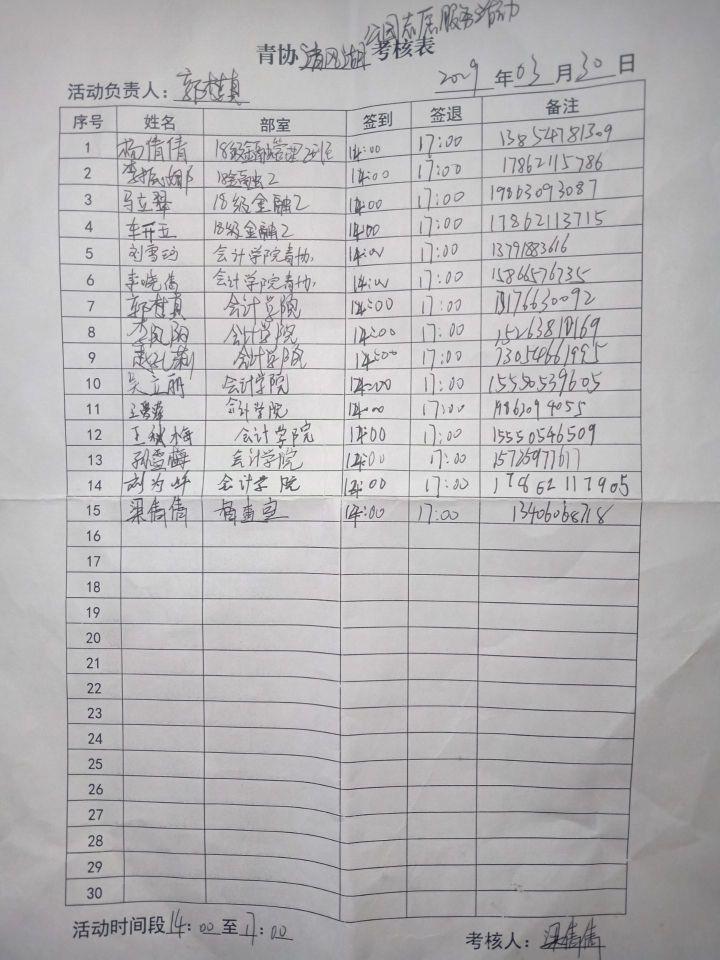 公园志愿服务活动
青协清风湖考核表
活动负责人： 2019年03月30日
序号 姓名 部室 签到 签退 备注
1 杨倩倩 18级金融管理2班 14:00 17:00 13854781309
2 18金融2 14:00 17:00 17862115786
3 马立翠 18级金融2 14:00 17:00 19863093087
4 车开立 18级金融2 14:00 17:00 17862113715
5 刘雪 会计学院青协 14:00 17:00 13791883616
6 李晓倩 会计学院青协 14:00 17:00 15866576735
7 会计学院 14:00 17:00
8 会计学院 14:00 17:00
9 会计学院 14:00 17:00
10 吴立丽 会计学院 14:00 17:00 15550539605
11 会计学院 14:00 17:00
12 王秋梅 会计学院 14:00 17:00 15550546509
13 孙雪梅 会计学院 14:00 17:00
14 会计学院 14:00 17:00 17862117905
15 梁倩倩 14:00 17:00 13406068718
16
17
18
19
20
21
22
23
24
25
26
27
28
29
30
活动时间段14:00至17:00
考核人：梁倩倩